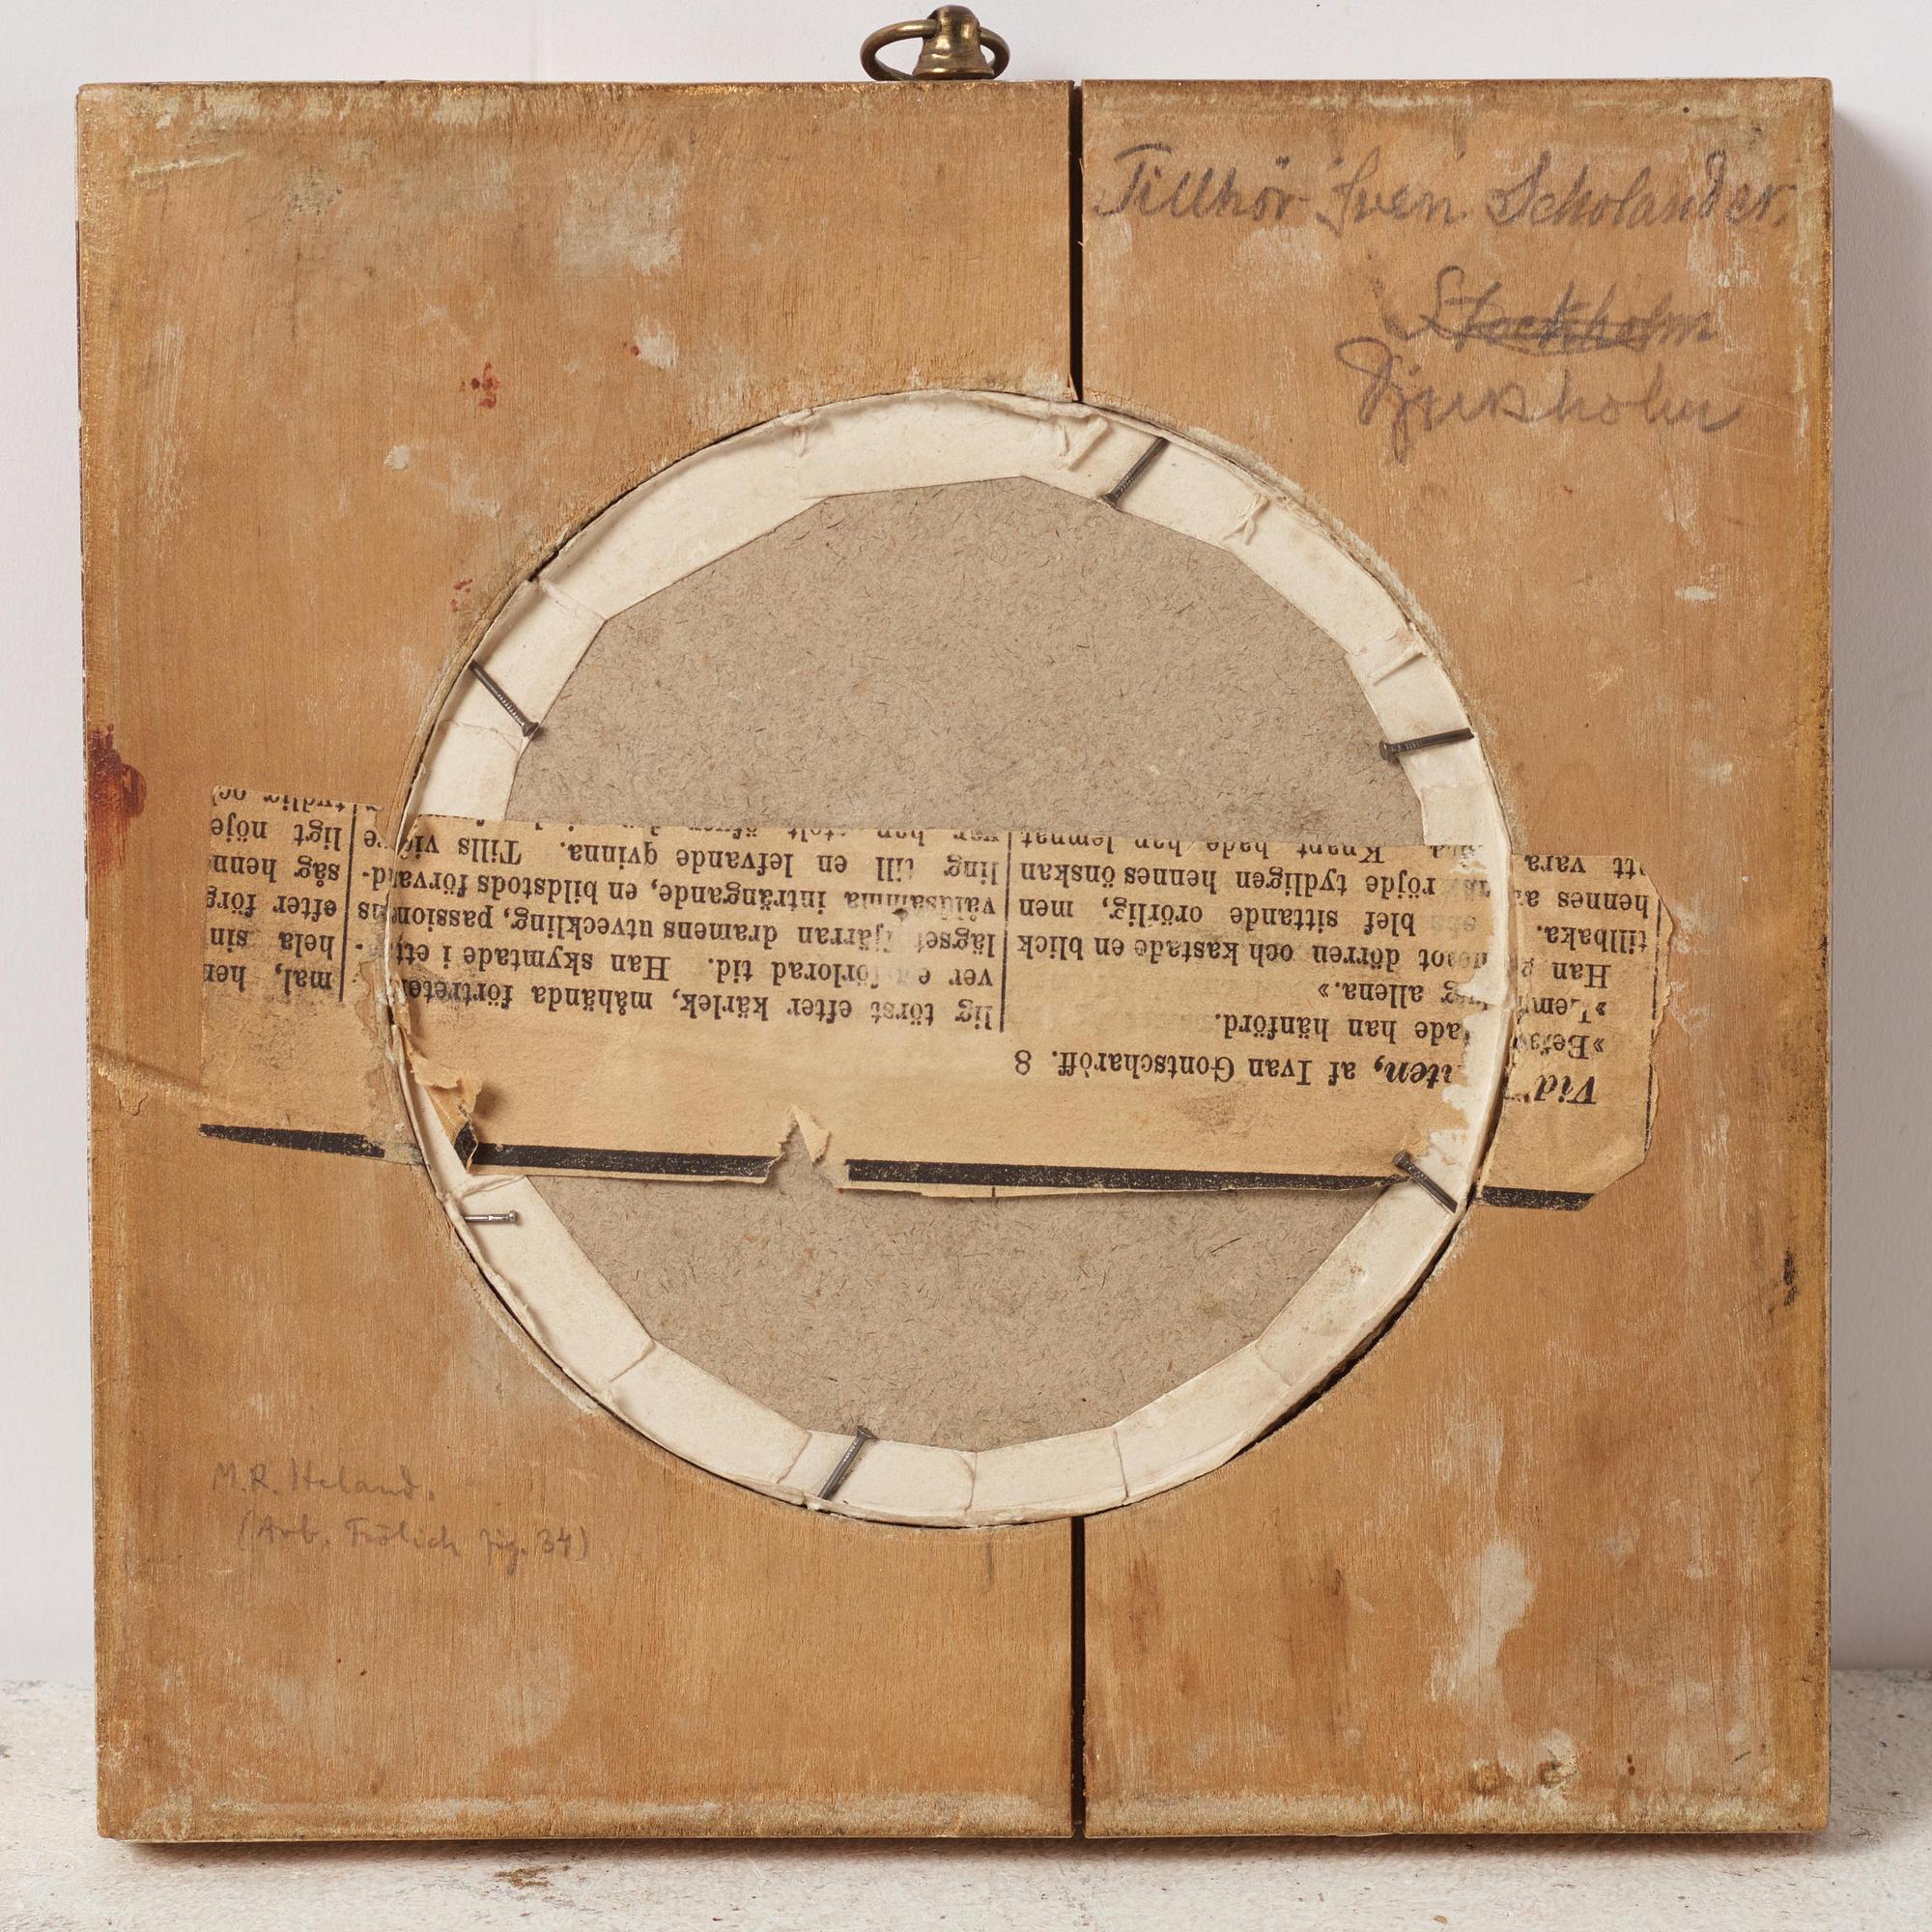 Tillhör Sven Scholander.
Stockholm
Djursholm
Vid nten, af Ivan Gontscharöff. 8
ade han hänförd.
»Lem ig allena.»
Han dörren och kastade en blick
tillbaka. blef sittande orörlig, men
hennes röjde tydligen hennes önskan
att vara Knapt hade han lemnat
lig törst efter kärlek, måhända förtreten
ver en förlorad tid. Han skymtade i ett
lägset fjärran dramens utveckling, passionens
våldsamma inträngande, en bildstods förvand-
ling till en lefvande qvinna. Tills vid re
var han stolt öfver
mal, her
hela sin
efter förg
såg henn
ligt nöje
tydlig oc
M.R. Heland.
(Arb. Frölich fig. 34)